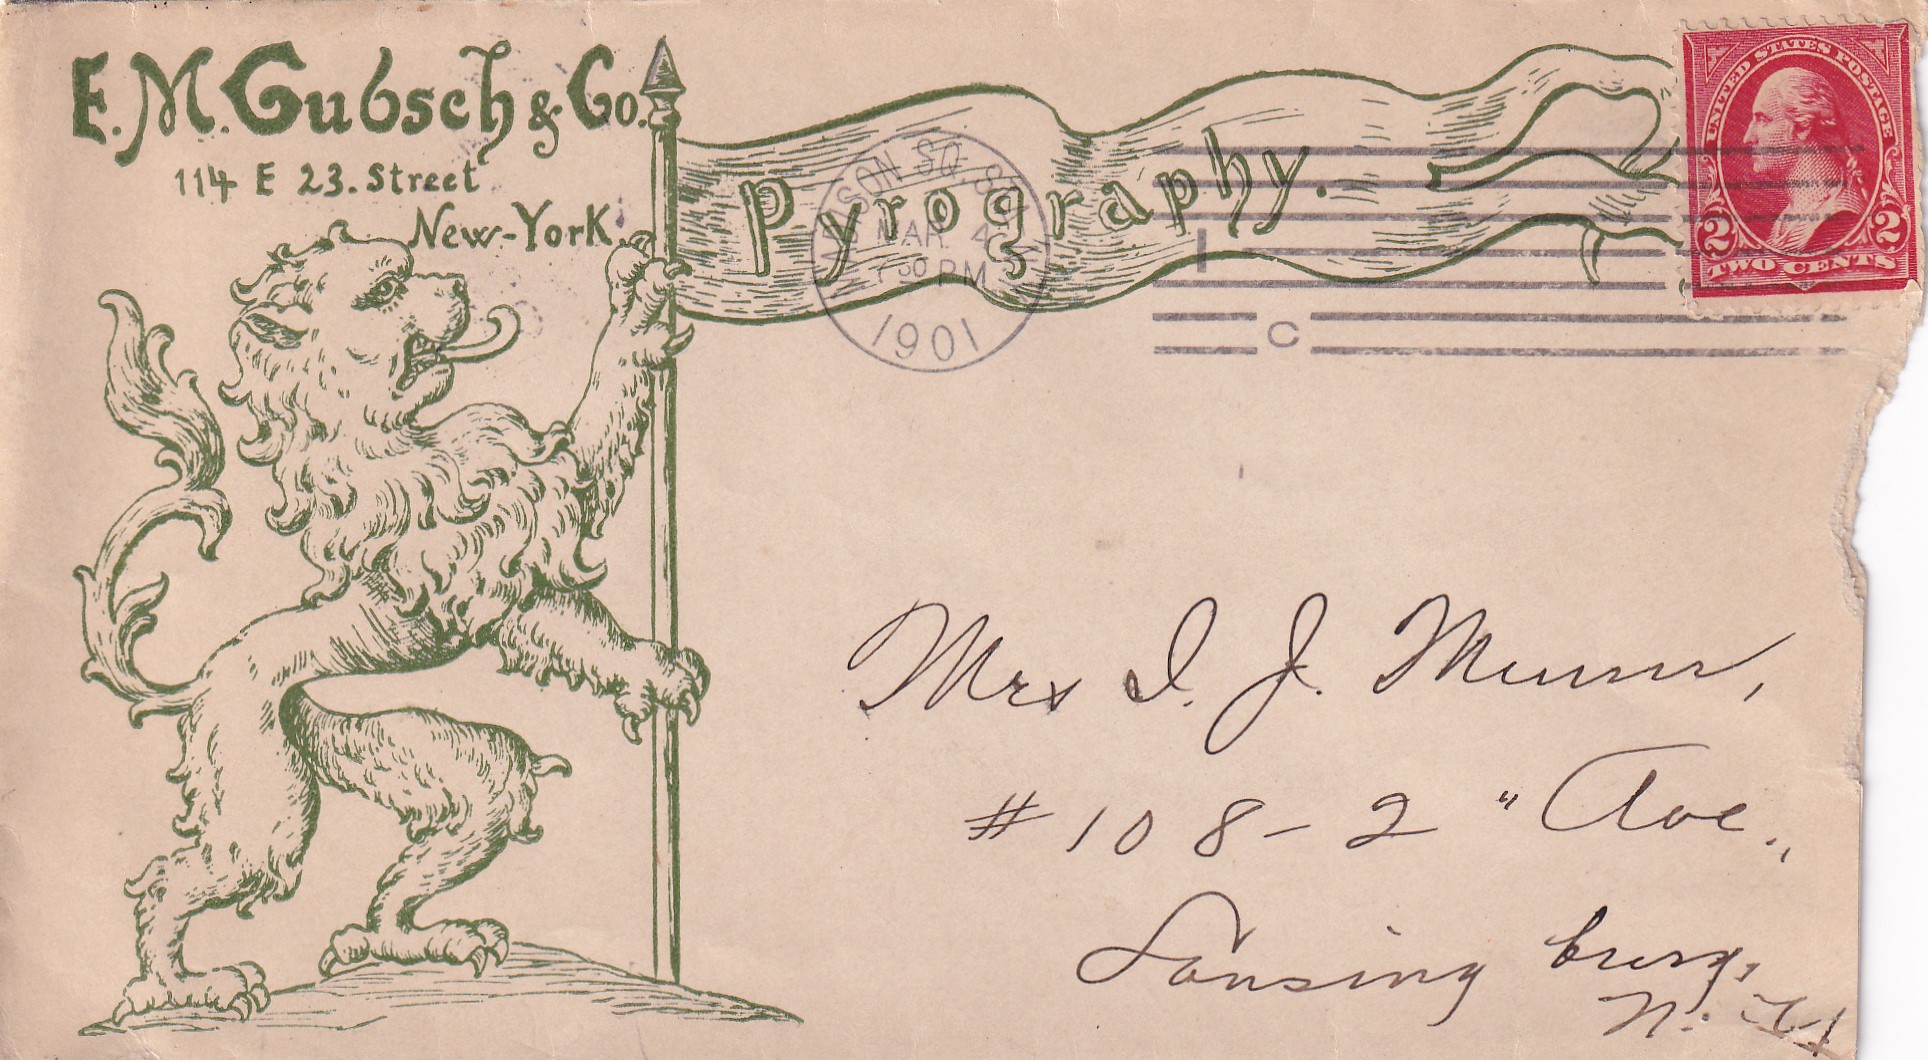 E. M. Gubsch & Co.
114 E 23. Street
New-York
Pyrography.
MADISON SQ. STA.
MAR 4
7 30 PM
1901
C
UNITED STATES POSTAGE
2 2
TWO CENTS
Mrs I. J. Munn,
#108-2" Ave.,
Lansingburg,
N. Y.